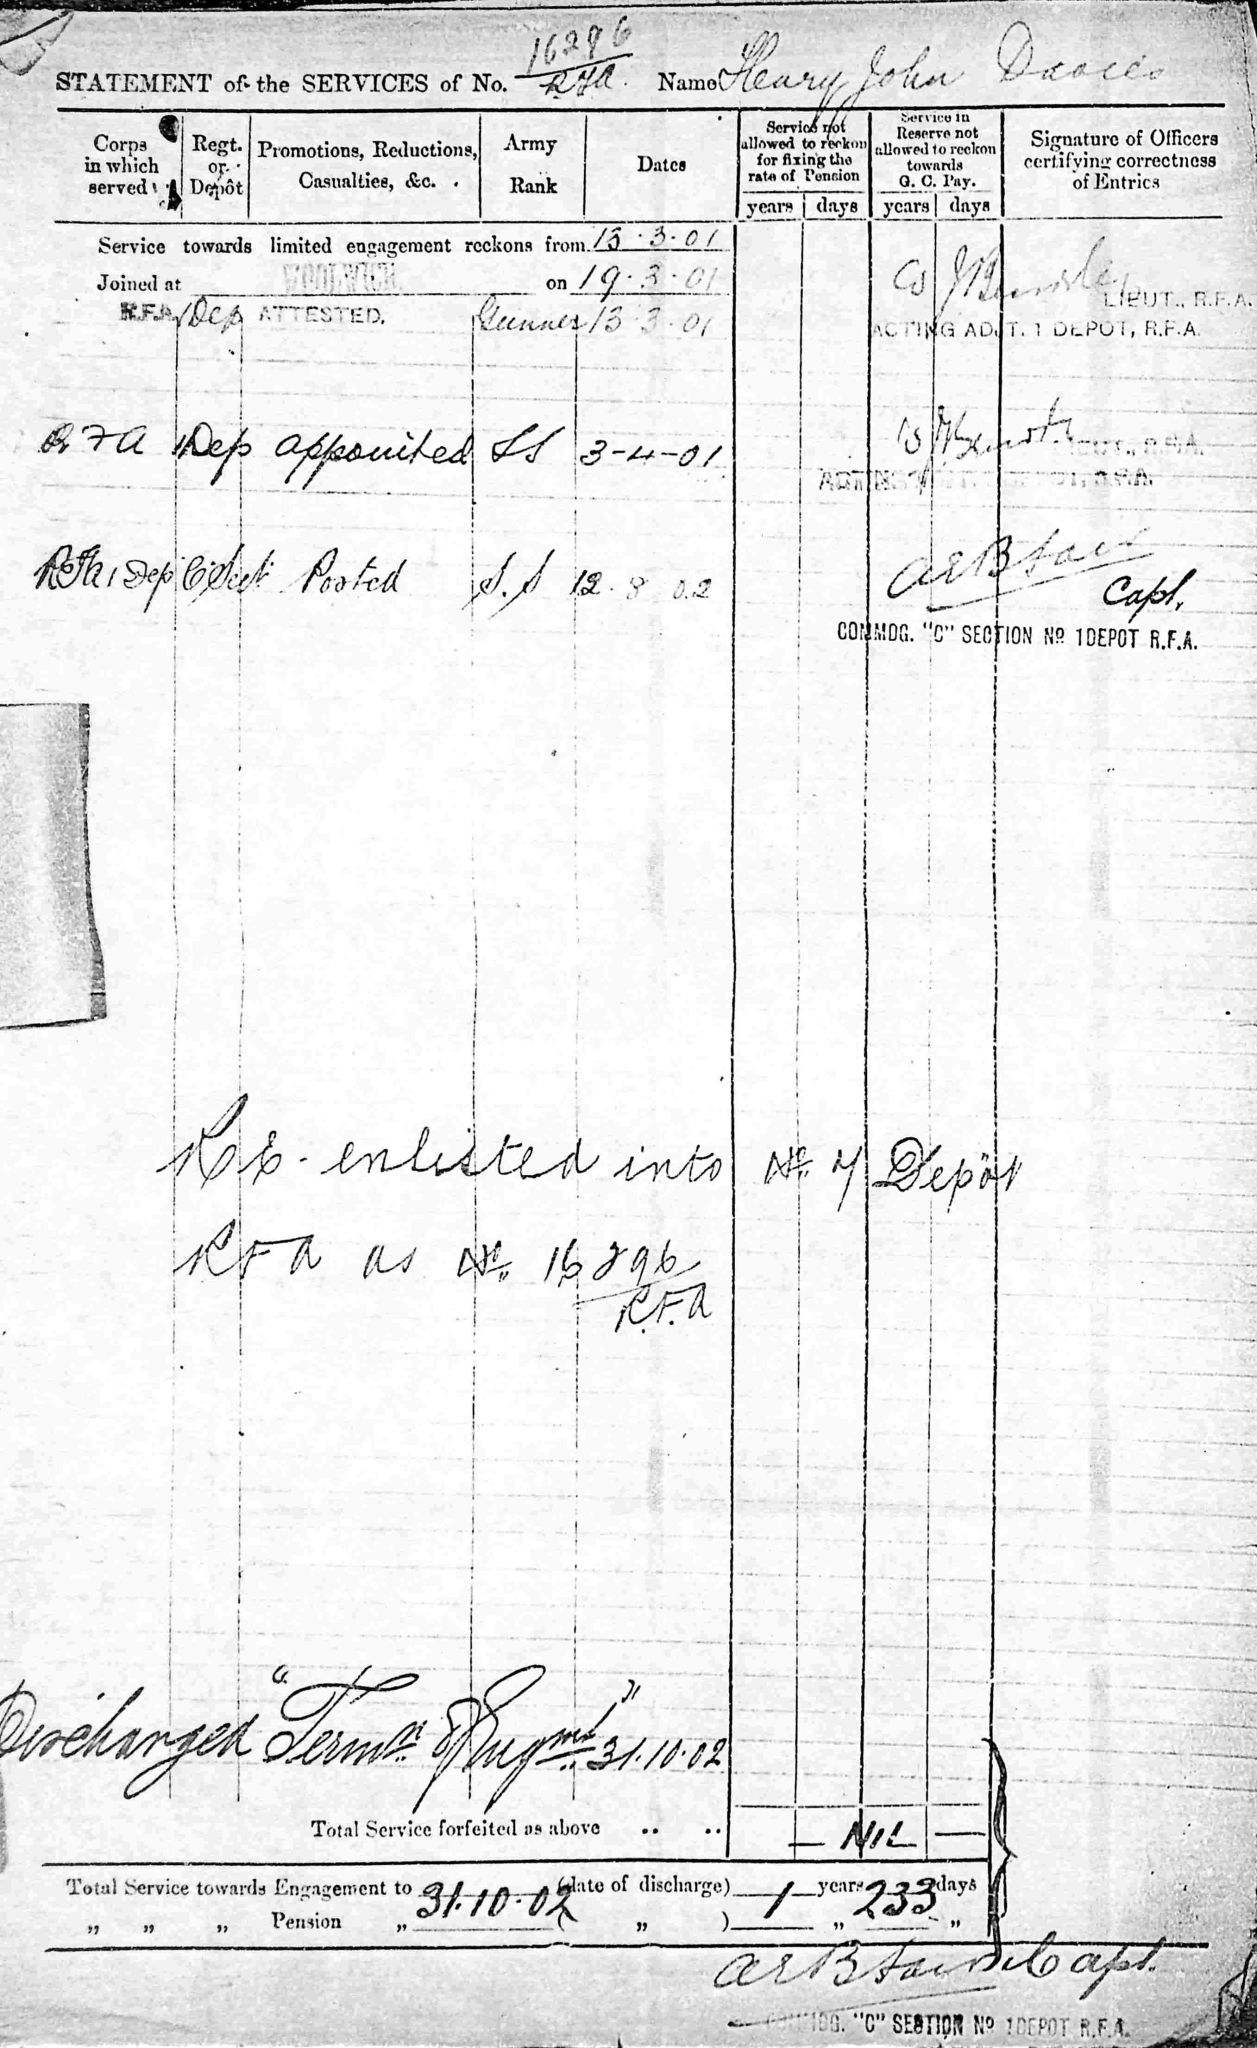 16296
STATEMENT of the SERVICES of No. RFA Name Henry John Davies
Corps in which served
Regt. or Depôt
Promotions, Reductions, Casualties, &c.
Army Rank
Dates
Service not allowed to reckon for fixing the rate of Pension
years days
Service in Reserve not allowed to reckon towards G. C. Pay.
years days
Signature of Officers certifying correctness of Entries
Service towards limited engagement reckons from 13.3.01
Joined at WOOLWICH. on 19.3.01
LIEUT., R.F.A.
R.F.A. Dep ATTESTED. Gunner 13.3.01
ACTING ADJT. 1 DEPOT, R.F.A.
R F A 1 Dep appointed SS 3-4-01
LIEUT., R.F.A.
RFA 1 Dep C Sect Posted S.S 12.8.02
Capt.
COMMDG. "C" SECTION No 1 DEPOT R.F.A.
Re-enlisted into No. 7 Depôt
RFA as No. 16296
R.F.A
Discharged "Termn. of Engmt." 31.10.02
Total Service forfeited as above .. .. — NIL —
Total Service towards Engagement to 31.10.02 (date of discharge) 1 years 233 days
„ „ „ Pension „ ( „ ) „ „
Capt.
COMMDG. "C" SECTION No 1 DEPOT R.F.A.